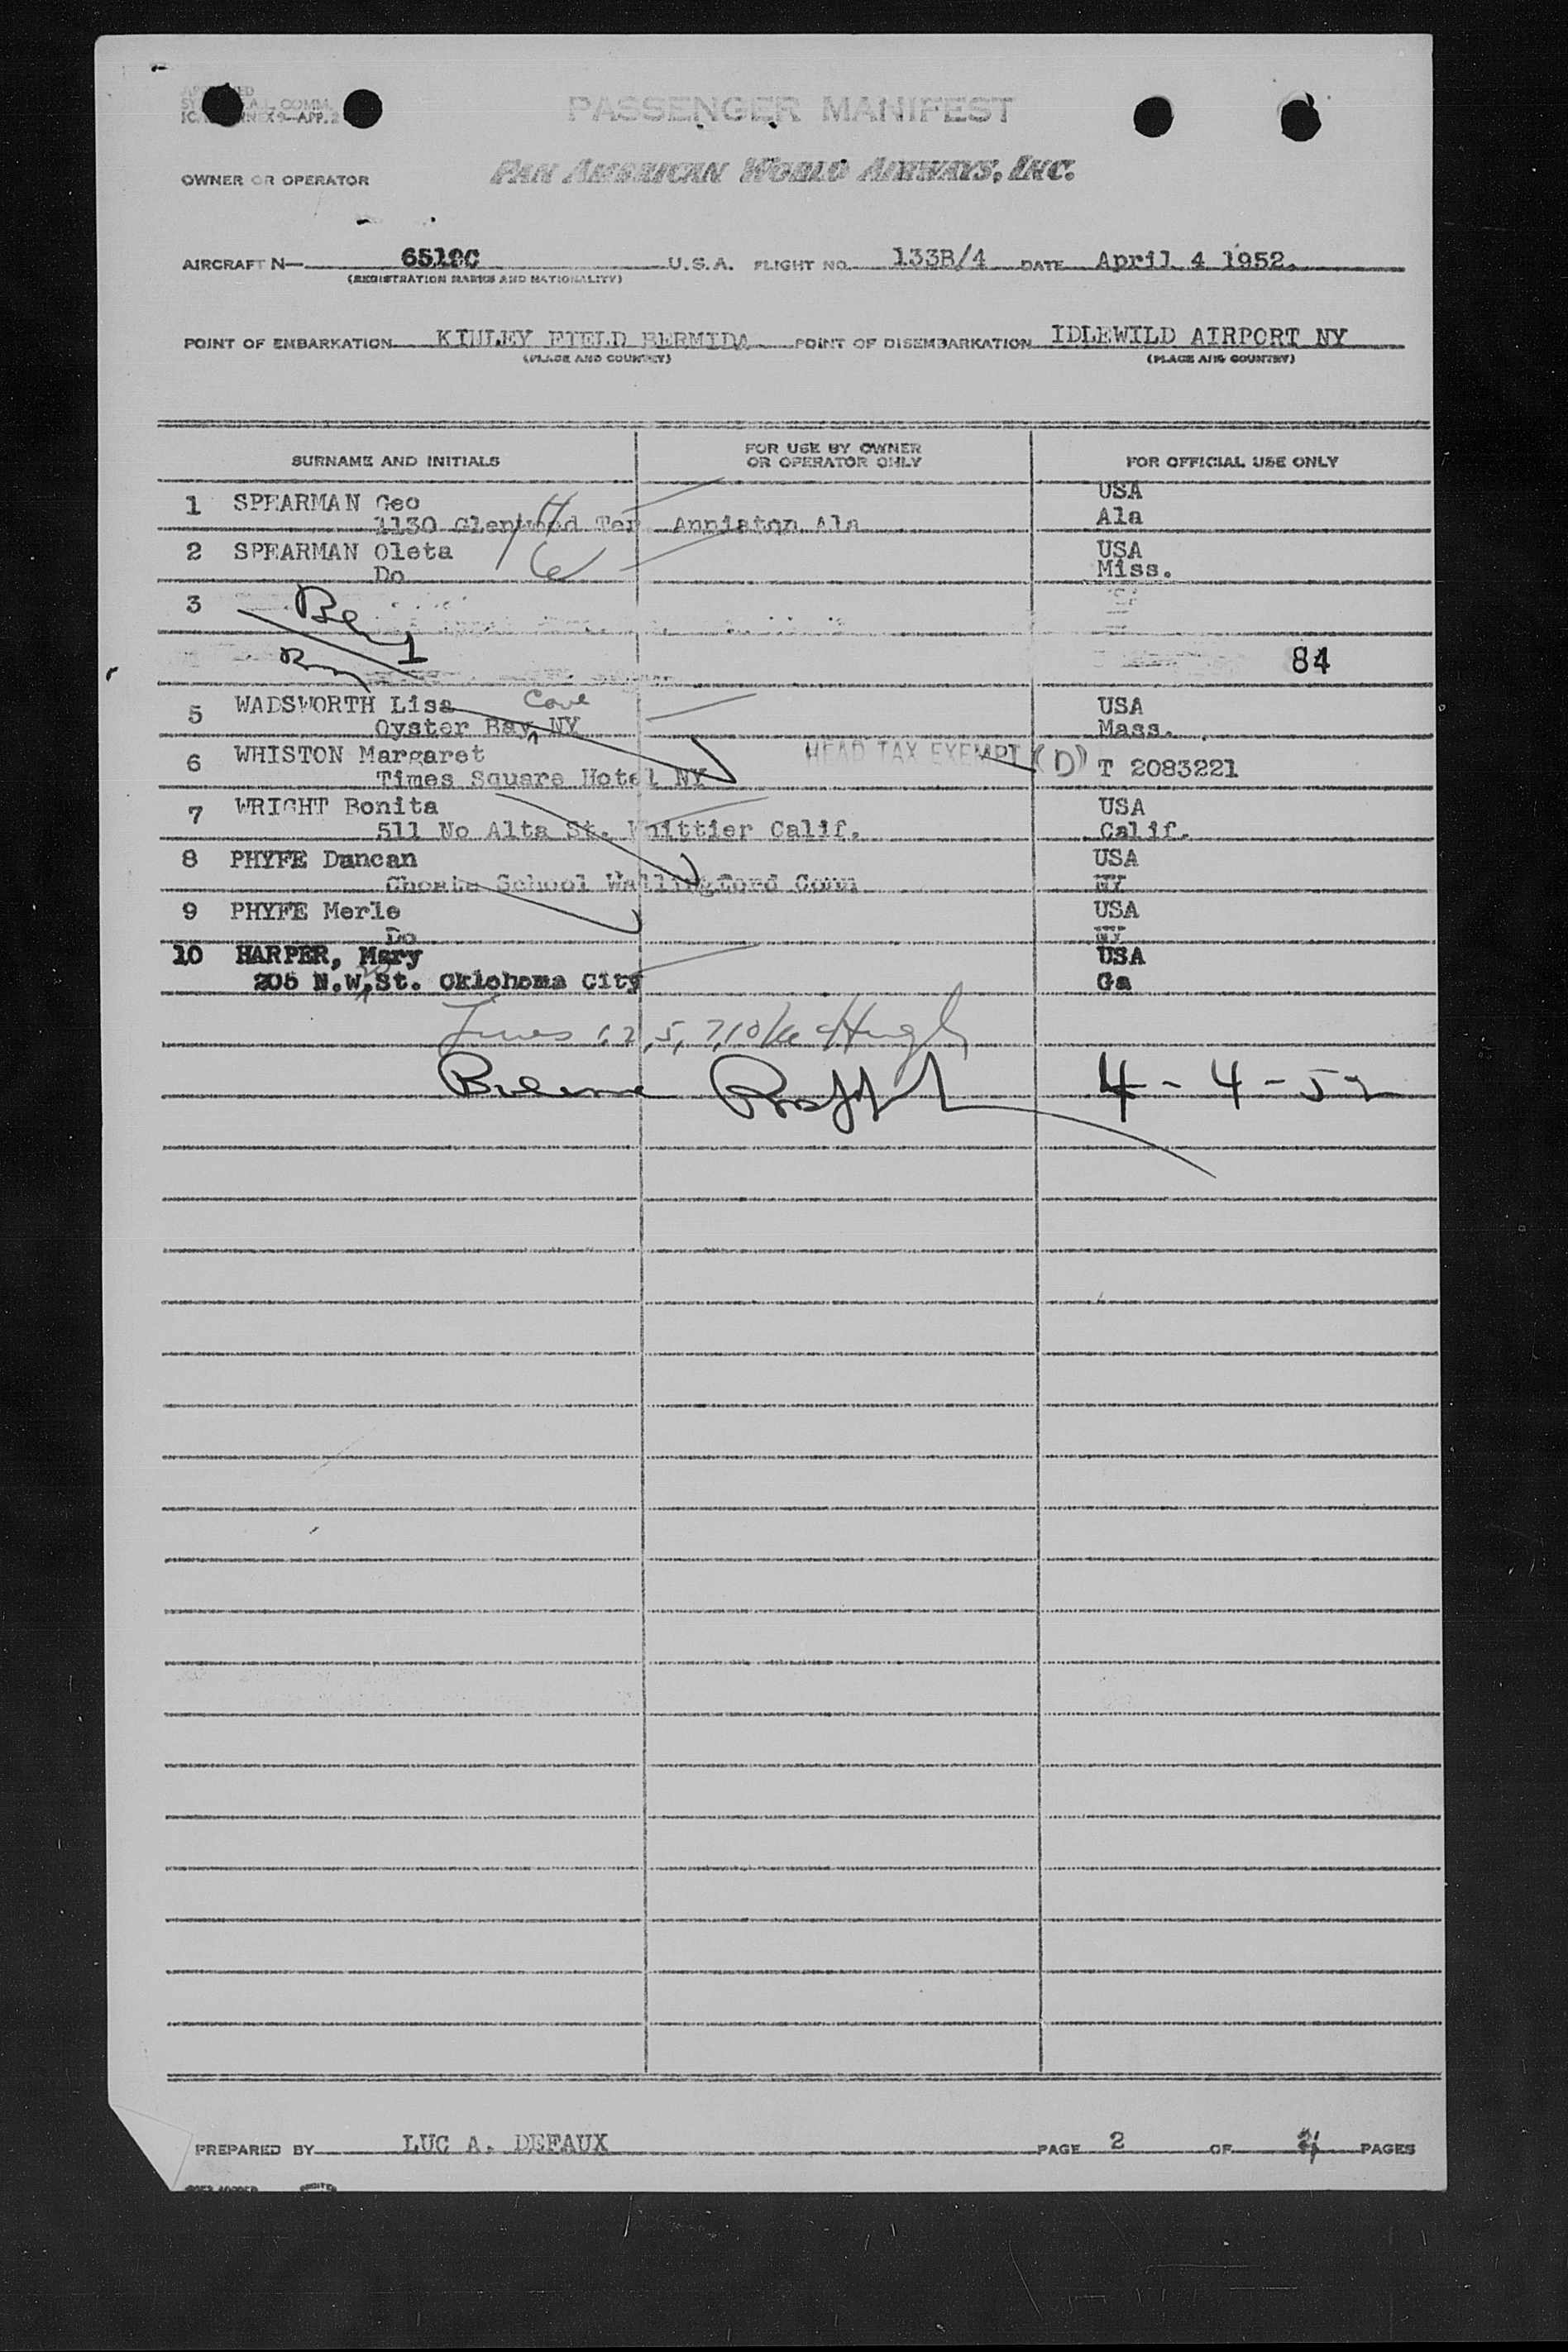 PASSENGER MANIFEST
OWNER OR OPERATOR
PAN AMERICAN WORLD AIRWAYS, INC.
AIRCRAFT N— 6519C U.S.A. FLIGHT NO. 133B/4 DATE April 4 1952.
(REGISTRATION MARKS AND NATIONALITY)
POINT OF EMBARKATION KINLEY FIELD BERMUDA POINT OF DISEMBARKATION IDLEWILD AIRPORT NY
(PLACE AND COUNTRY) (PLACE AND COUNTRY)
SURNAME AND INITIALS FOR USE BY OWNER OR OPERATOR ONLY FOR OFFICIAL USE ONLY
1 SPEARMAN Geo USA
1130 Glenwood Ter Anniston Ala Ala
2 SPEARMAN Oleta USA
Do Miss.
3
84
5 WADSWORTH Lisa Cove USA
Oyster Bay, NY Mass.
6 WHISTON Margaret HEAD TAX EXEMPT (D) T 2083221
Times Square Hotel NY
7 WRIGHT Bonita USA
511 No Alta St. Whittier Calif. Calif.
8 PHYFE Duncan USA
Choate School Wallingford Conn NY
9 PHYFE Merle USA
Do NY
10 HARPER, Mary USA
205 N.W. St. Oklohoma City Ga
1, 2, 5, 7, 10
4-4-52
PREPARED BY LUC A. DEFAUX PAGE 2 OF PAGES